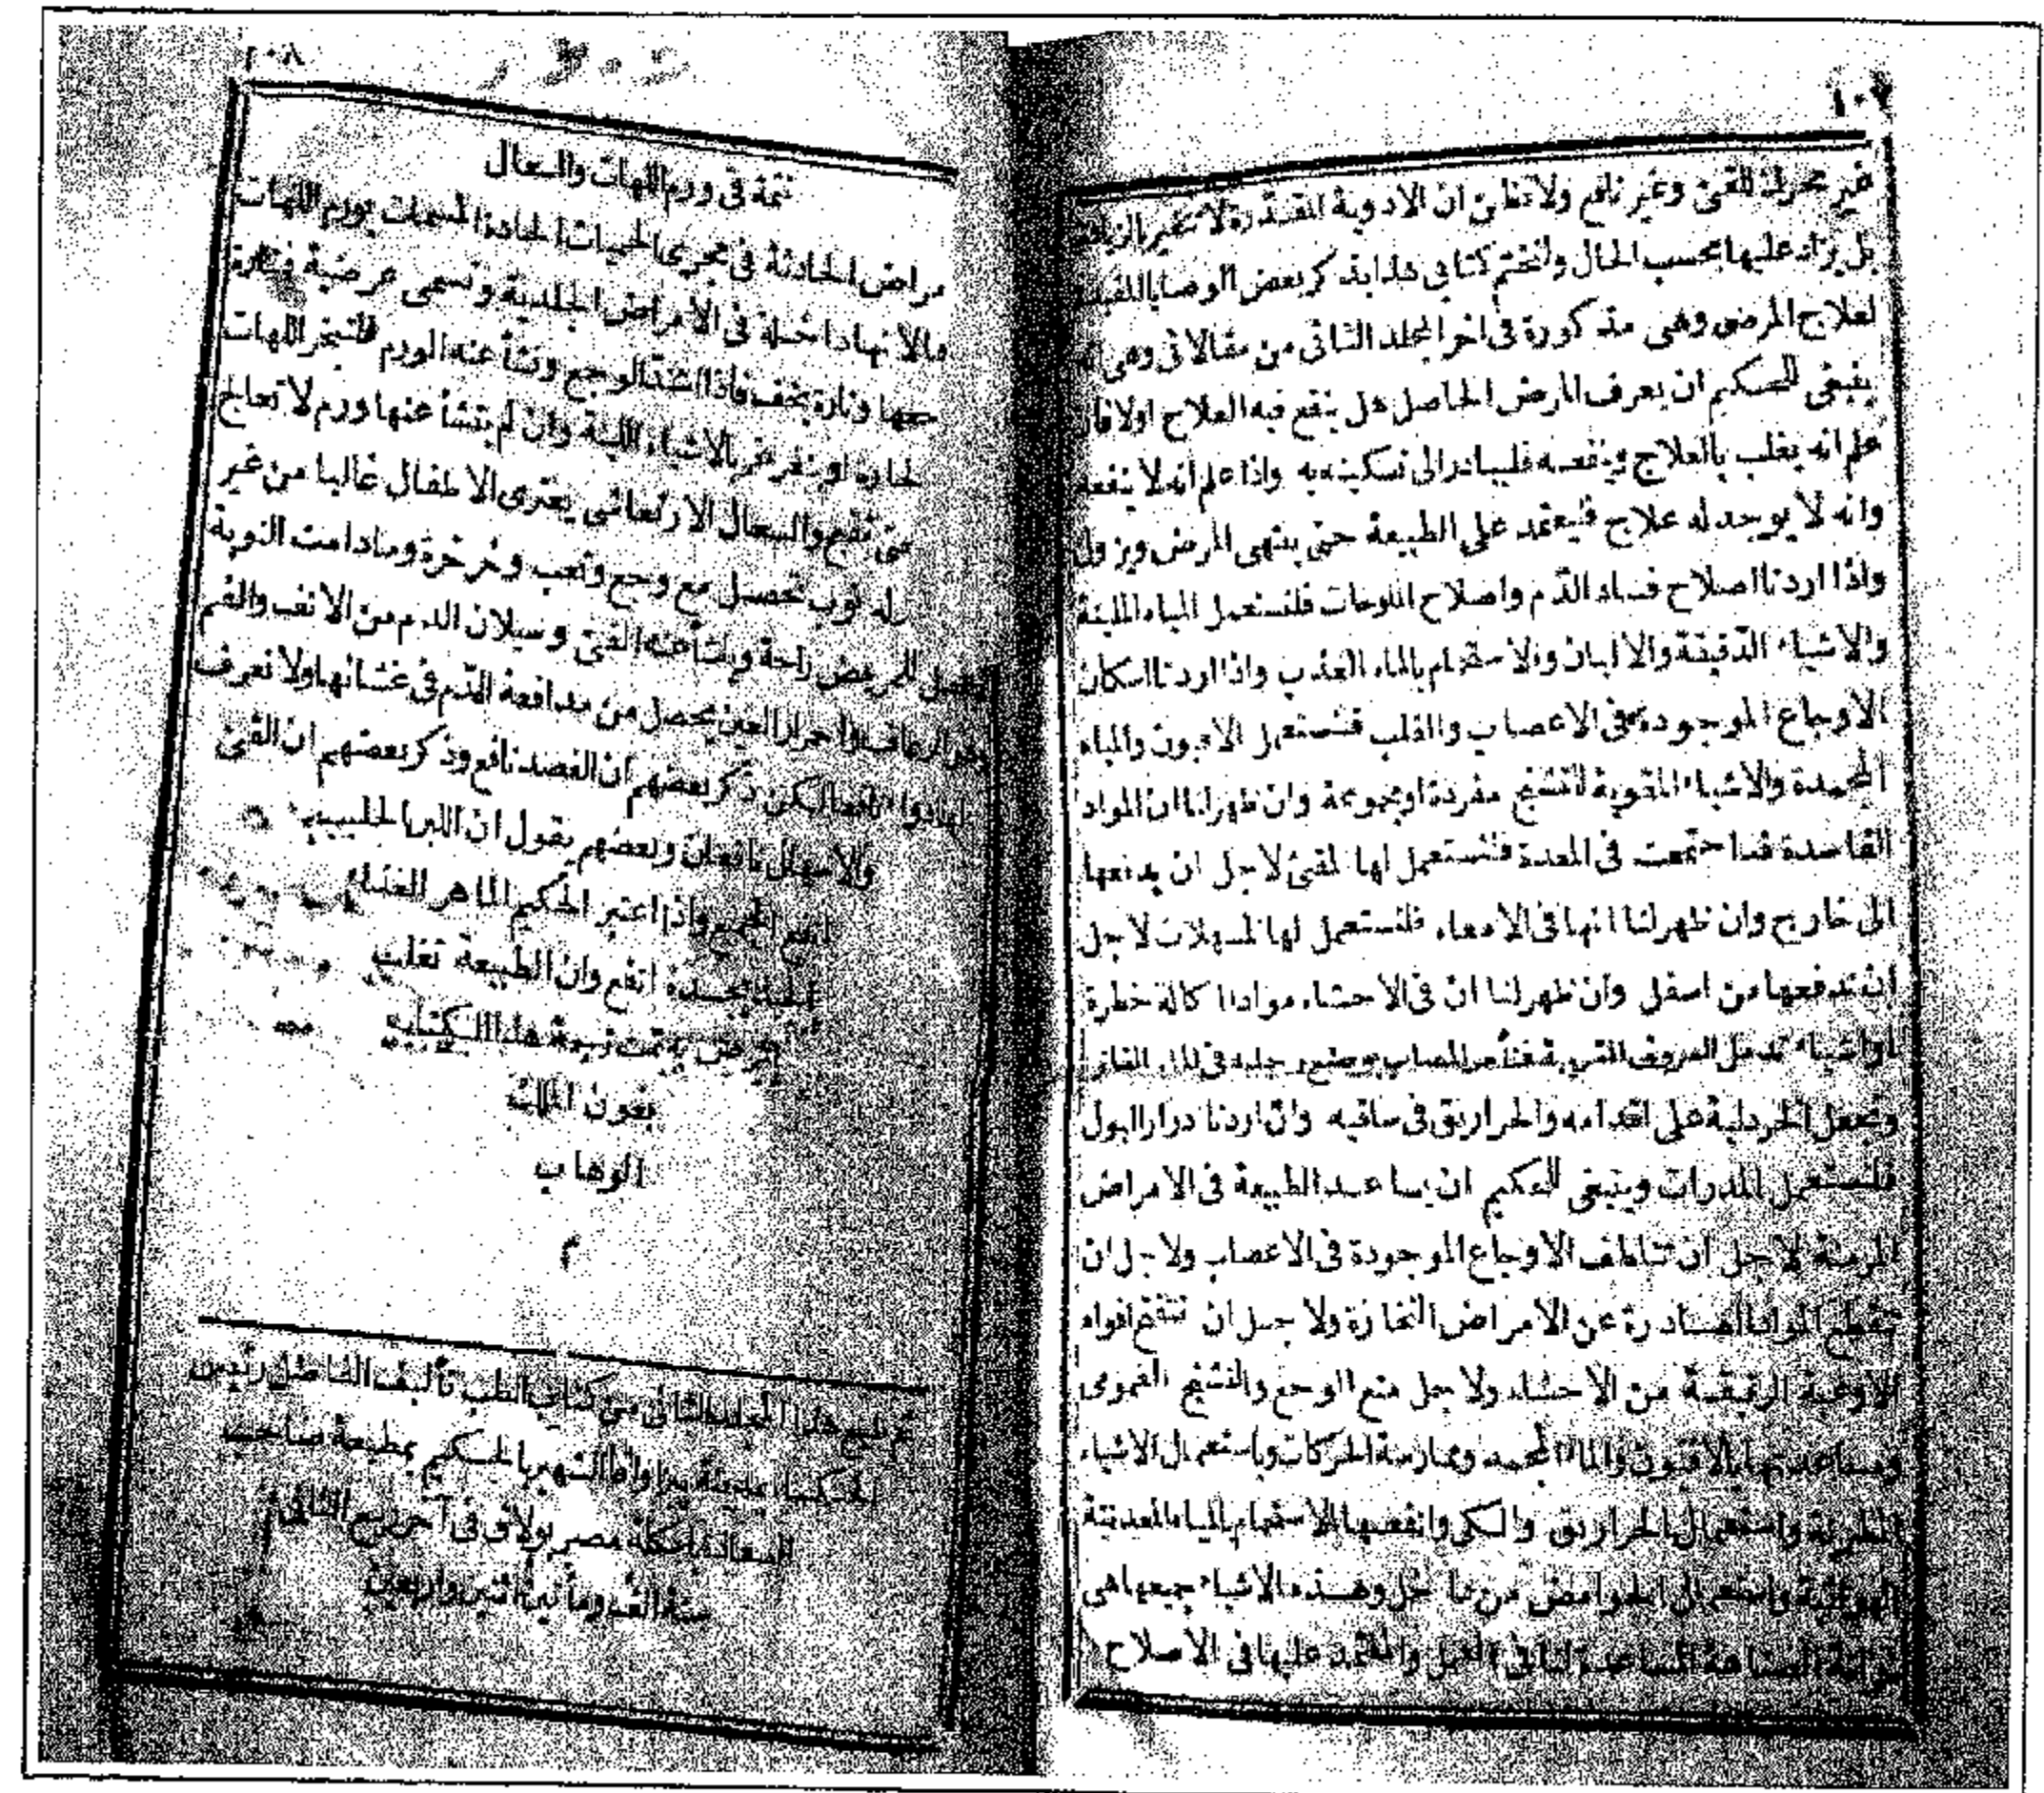 ١٠٧
غير محرك للقئ وغير نافع ولا تظن ان الادوية المقدرة لا تتغير بالزيادة
بل يزاد عليها بحسب الحال ولنختم كتابى هذا بذكر بعض الوصايا المفيدة
لعلاج المرضى وهى مذكورة فى اخر المجلد الثانى من مقالاتى وهى انه
ينبغى للحكيم ان يعرف المرض الحاصل هل ينفع فيه العلاج اولا فان
علم انه يغلب بالعلاج وينفعه فليبادر الى تسكينه به واذا علم انه لا ينفعه
وانه لا يوجد له علاج فليعتمد على الطبيعة حتى ينتهى المرض ويزول
واذا اردنا اصلاح فساد الدّم واصلاح الملوحات فلنستعمل المياه الملينة
والاشياء الدّقيقة والالبان والاستحمام بالماء العذب واذا اردنا اسكان
الاوجاع الموجودة فى الاعصاب والقلب فنستعمل الافيون والمياه
المجمدة والاشياء المقوية للتشنج مفردة او مجموعة وان ظهر لنا ان المواد
الفاسدة قد اجتمعت فى المعدة فلنستعمل لها المقئ لاجل ان يدفعها
الى خارج وان ظهر لنا انها فى الامعاء فلنستعمل لها المسهلات لاجل
ان تدفعها من اسفل وان ظهر لنا ان فى الاحشاء موادا اكالة خطرة
او اشياء تدخل العروق التى المصاب بوضع رجليه فى الماء الفاتر
وتجعل الخردلية على اقدامه والحراريق فى ساقيه وان اردنا درار البول
فلنستعمل المدرات وينبغى للحكيم ان يساعد الطبيعة فى الامراض
المزمنة لاجل ان تتلطف الاوجاع الموجودة فى الاعصاب ولاجل ان
تقطع المواد الصادرة عن الامراض ولاجل ان تنفتح افواه
الاوعية الرقيقة من الاحشاء ولاجل منع الوجع والتشنج
بالافيون والماء المجمد وممارسة الحركات وباستعمال الاشياء
العطرية واستعمال الحراريق والكى وانفعها الاستحمام بالمياه المعدنية
الهوائية واستعمال الحوامض من داخل وهذه الاشياء جميعها هى
الصناعة المساعدة لنا فى العمل والمعتمد عليها فى الاصلاح
١٠٨
تتمة فى ورم اللهات والسعال
مراض الحادثة فى مجرى الحميات الحادة المسمات بورم اللهات
فالا نها داخلة فى الامراض الجلدية وتسمى عرضية فتارة
جعها وتارة يخف فاذا اشتد الوجع ونشأ عنه الورم فلتبخر اللهات
لحارة او تغرغر بالاشياء اللينة وان لم ينشأ عنها ورم لا تعالج
والسعال الارتعاشى يعترى الاطفال غالبا من غير
وله نوب تحصل مع وجع وتعب وخرخرة ومادامت النوبة
تحصل للمريض راحة وينشأ عنه القئ وسيلان الدم من الانف والفم
رعاف واحمرار العين يحصل من مدافعة الدّم فى غشائها ولا نعرف
لها دواء نافعا لكن ذكر بعضهم ان الفصد نافع وذكر بعضهم ان القئ
والاسهال نافعان وبعضهم يقول ان اللبن الحليب
انفع الجميع واذا اعتبر الحكيم الماهر الغذاء
الجيد يجده انفع وان الطبيعة تغلب
المرض به تمت ترجمة هذا الكتاب
بعون الملك
الوهاب
م
تم طبع هذا المجلد الثانى من كتاب الطب تأليف الفاضل رئيس
الحكماء بمدينة الشهير بالحكيم بمطبعة صاحب
السعادة بولاق فى آخر ربيع الثانى
سنة الف ومأتين اثنين واربعين